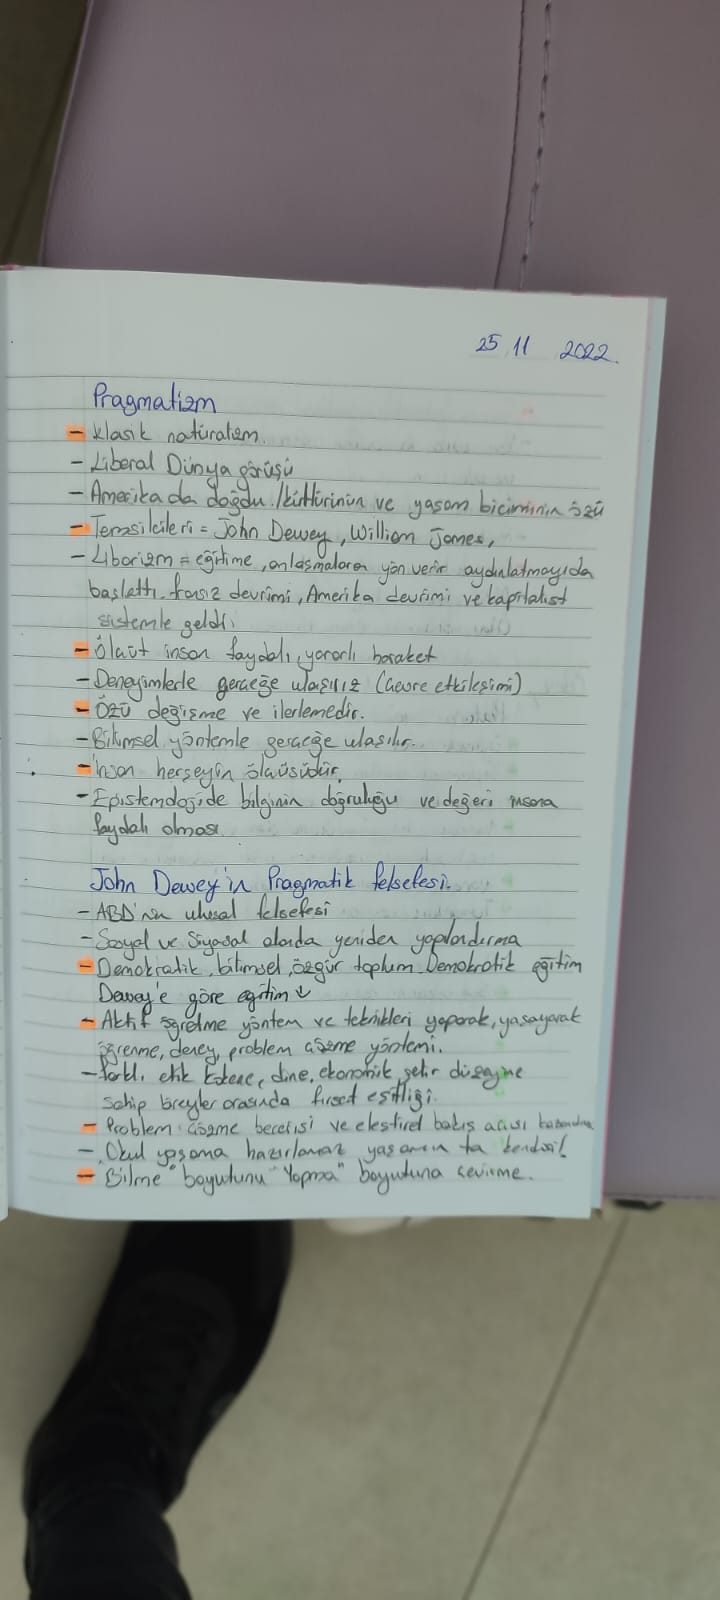 25 11 2022.
Pragmatizm
- Klasik natüralizm.
- Liberal Dünya görüşü
- Amerika da doğdu./kültürünün ve yaşam biçiminin özü
- Temsilcileri = John Dewey, William James,
- Liberizm = eğitime, anlaşmalara yön verir aydınlatmayıda
başlattı. fransız devrimi, Amerika devrimi ve kapitalist
sistemle geldi.
- Ölçüt insan faydalı, yararlı haraket
- Deneyimlerle gerçeğe ulaşırız (çevre etkileşimi)
- Özü değişme ve ilerlemedir.
- Bilimsel yöntemle gerçeğe ulaşılır.
- İnsan herşeyin ölçüsüdür.
- Epistemolojide bilginin doğruluğu ve değeri insana
faydalı olması
John Dewey'in Pragmatik felsefesi.
- ABD'nin ulusal felsefesi
- Sosyal ve Siyasal alanda yeniden yapılandırma
- Demokratik, bilimsel, özgür toplum. Demokratik eğitim
Dewey'e göre eğitim ↓
- Aktif öğretme yöntem ve teknikleri yaparak, yaşayarak
öğrenme, deney, problem çözme yöntemi.
- farklı etik kökene, dine, ekonomik gelir düzeyine
sahip bireyler arasında fırsat eşitliği.
- Problem çözme becerisi ve eleştirel bakış açısı
- Okul yaşama hazırlamaz yaşamın ta kendisi!
- Bilme "boyutunu "Yapma" boyutuna çevirme.